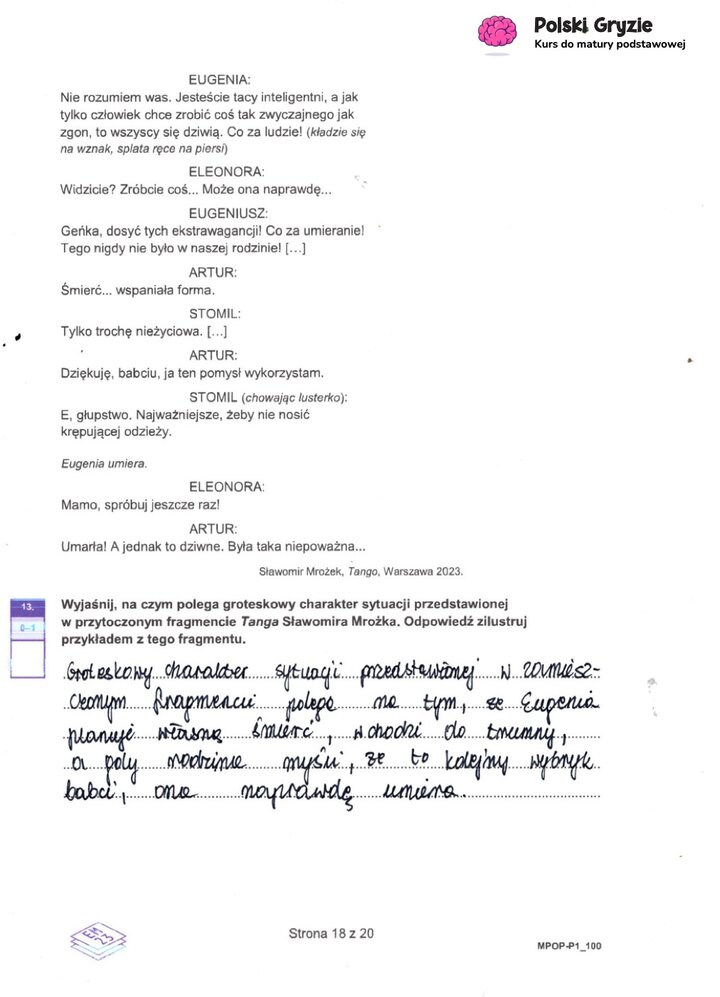 Polski Gryzie
Kurs do matury podstawowej
EUGENIA:
Nie rozumiem was. Jesteście tacy inteligentni, a jak
tylko człowiek chce zrobić coś tak zwyczajnego jak
zgon, to wszyscy się dziwią. Co za ludzie! (kładzie się
na wznak, splata ręce na piersi)
ELEONORA:
Widzicie? Zróbcie coś... Może ona naprawdę...
EUGENIUSZ:
Geńka, dosyć tych ekstrawagancji! Co za umieranie!
Tego nigdy nie było w naszej rodzinie! [...]
ARTUR:
Śmierć... wspaniała forma.
STOMIL:
Tylko trochę nieżyciowa. [...]
ARTUR:
Dziękuję, babciu, ja ten pomysł wykorzystam.
STOMIL (chowając lusterko):
E, głupstwo. Najważniejsze, żeby nie nosić
krępującej odzieży.
Eugenia umiera.
ELEONORA:
Mamo, spróbuj jeszcze raz!
ARTUR:
Umarła! A jednak to dziwne. Była taka niepoważna...
Sławomir Mrożek, Tango, Warszawa 2023.
13.
0–1
Wyjaśnij, na czym polega groteskowy charakter sytuacji przedstawionej
w przytoczonym fragmencie Tanga Sławomira Mrożka. Odpowiedź zilustruj
przykładem z tego fragmentu.
Groteskowy charakter sytuacji przedstawionej w zamiesz-
czonym fragmencie polega na tym, że Eugenia
planuje własną śmierć, wchodzi do trumny,
a gdy rodzina myśli, że to kolejny wybryk
babci, ona naprawdę umiera.
Strona 18 z 20
MPOP-P1_100